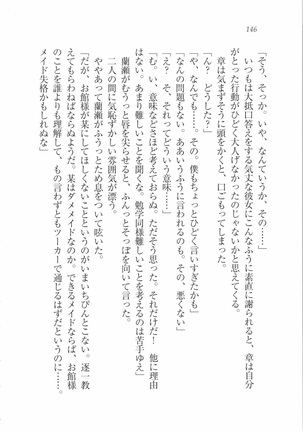 146
「そう、そっか。いや、なんていうか、その……」
　いつもは大抵口答えをする気丈な彼女にこんなふうに素直に謝られると、章は自分
がとった行動がひどく大人げなかったのじゃないかと思えてくる。
　章は気まずそうに頭をかくと、口ごもってしまった。
「ん？　どうした？」
「や、なんでも……。その。僕もちょっとひどく言いすぎたかも」
「なんの問題もない。ああいうふうに言われるのも。その、悪くない」
「え？　そ、それってどういう意味……」
「む。い、意味などさほど考えておらぬ。ただそう思った。それだけだ！　他に理由
はない。あまり難しいことを聞くな。勉学同様難しいことを考えるのは苦手ゆえ」
　蘭瀬がむうっと唇を尖らせると、ふんっとそっぽを向いて言った。
　二人の間に気恥ずかしい雰囲気が漂う。
　ややあって蘭瀬がふうっとため息をついて呟いた。
「だが、お館様が某にしてほしくないことというのがいまいちぴんとこない。逐一教
えてもらわねばならぬようだ。某はダメメイドなのか。できるメイドならば、お館様
のことを誰よりも理解して、もの言わずともツーカーで通じるはずだというのに……。
メイド失格かもしれぬな」